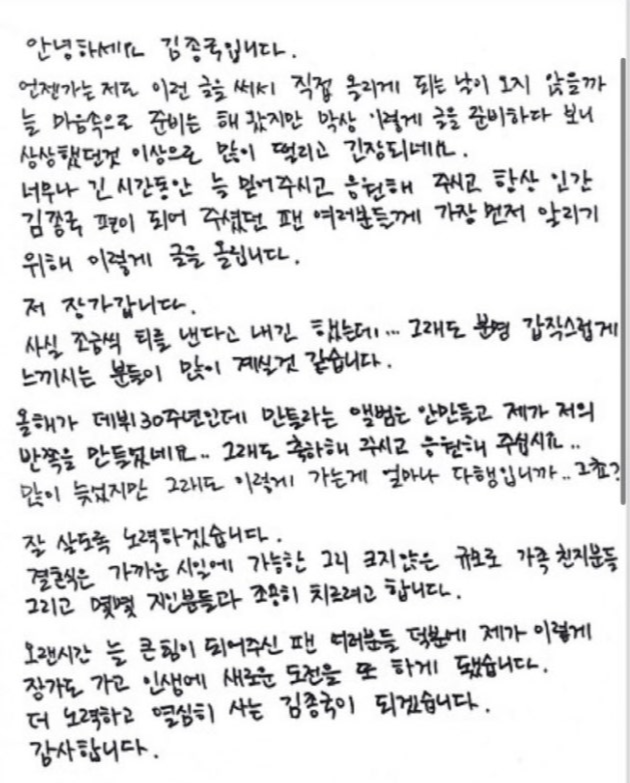 안녕하세요 김종국입니다.
언젠가는 저도 이런 글을 써서 직접 올리게 되는 날이 오지 않을까
늘 마음속으로 준비는 해 왔지만 막상 이렇게 글을 준비하다 보니
상상했던것 이상으로 많이 떨리고 긴장되네요.
너무나 긴 시간동안 늘 믿어주시고 응원해 주시고 항상 인간
김종국 편이 되어 주셨던 팬 여러분들께 가장 먼저 알리기
위해 이렇게 글을 올립니다.
저 장가갑니다.
사실 조금씩 티를 낸다고 내긴 했는데... 그래도 분명 갑작스럽게
느끼시는 분들이 많이 계실것 같습니다.
올해가 데뷔30주년인데 만들라는 앨범은 안만들고 제가 저의
반쪽을 만들었네요.. 그래도 축하해 주시고 응원해 주십시요..
많이 늦었지만 그래도 이렇게 가는게 얼마나 다행입니까..그쵸?
잘 살도록 노력하겠습니다.
결혼식은 가까운 시일에 가능한 그리 크지않은 규모로 가족 친지분들
그리고 몇몇 지인분들과 조용히 치르려고 합니다.
오랜시간 늘 큰힘이 되어주신 팬 여러분들 덕분에 제가 이렇게
장가도 가고 인생에 새로운 도전을 또 하게 됐습니다.
더 노력하고 열심히 사는 김종국이 되겠습니다.
감사합니다.